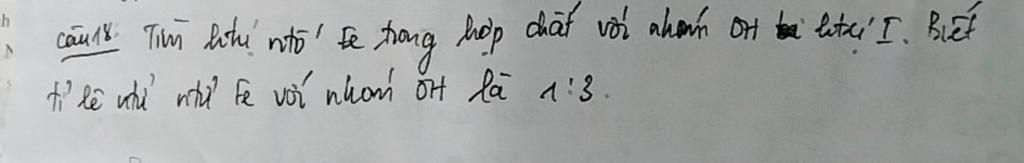 câu 18: Tìm htrị ntố Fe trong hợp chất với nhóm OH htrị I. Biết
tỉ lệ ntử Fe với nhóm OH là 1:3.